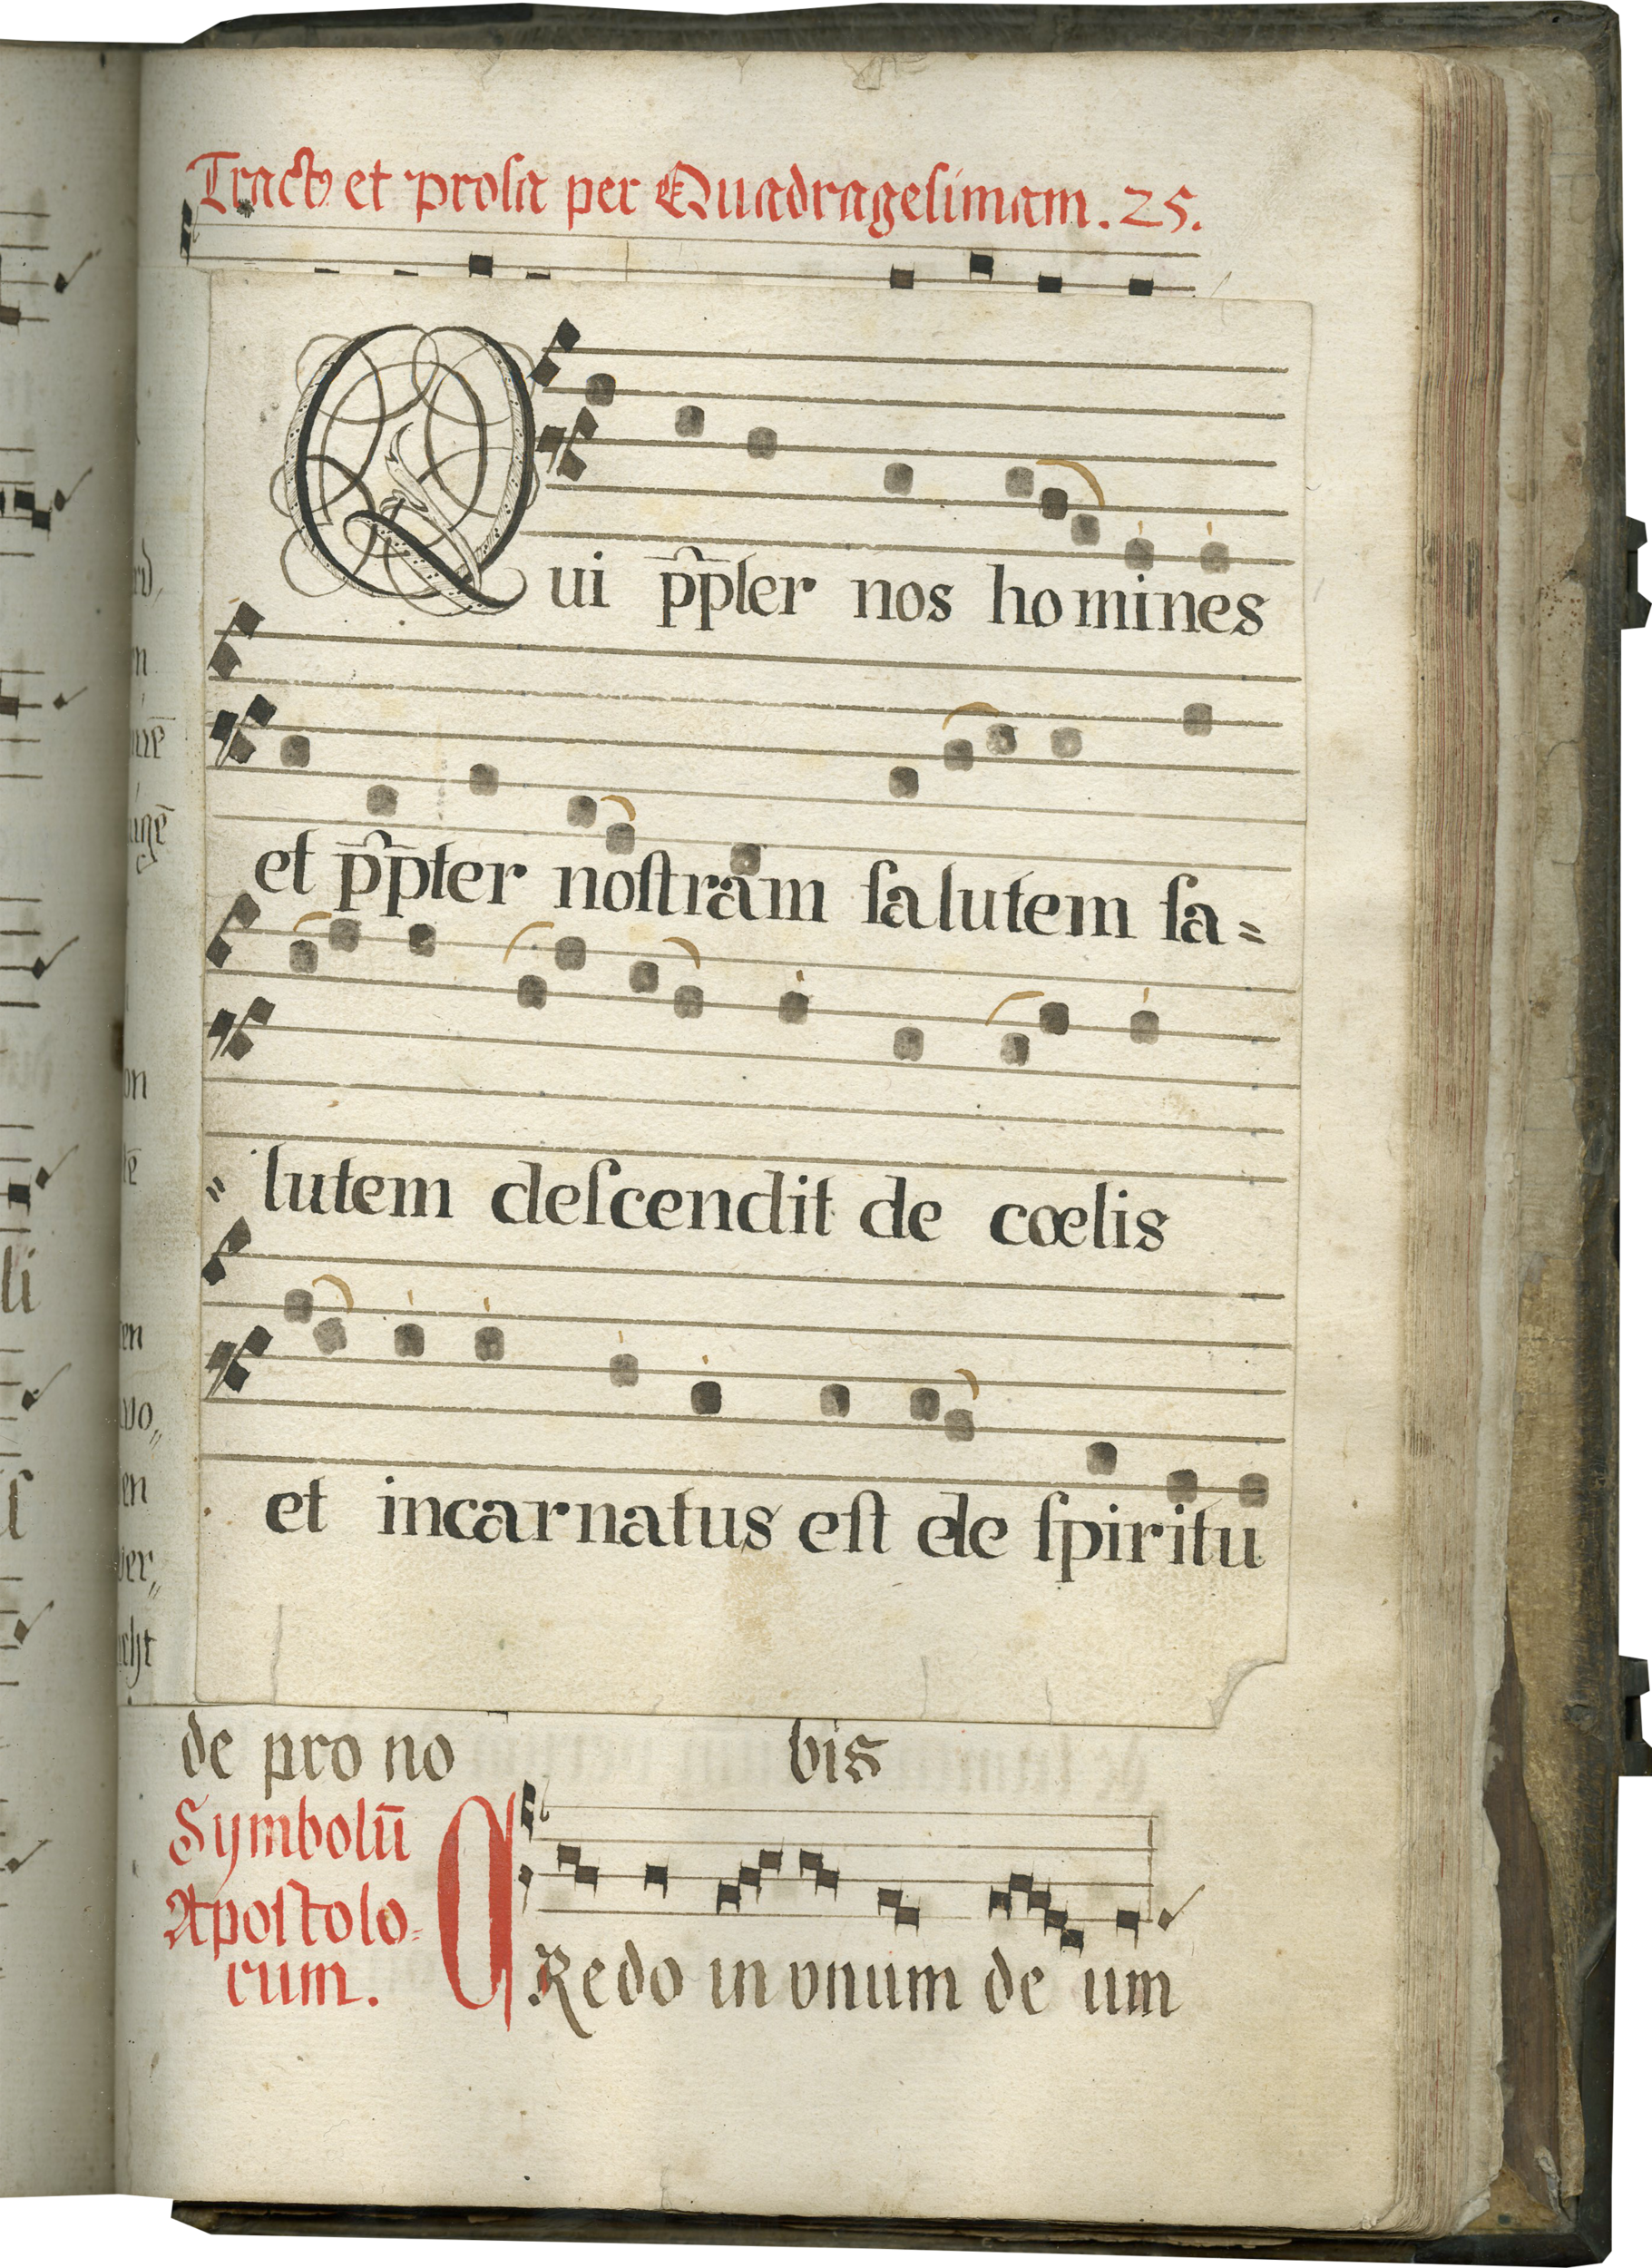 Tractꝰ et prosa per Quadragesimam. 25.
Qui pp̄ter nos homines
et pp̄ter noſtram ſalutem ſa=
= lutem deſcendit de cœlis
et incarnatus eſt de ſpiritu
de pro no bis
Symbolū
Apoſtolo=
rum.
CRedo in vnum de um